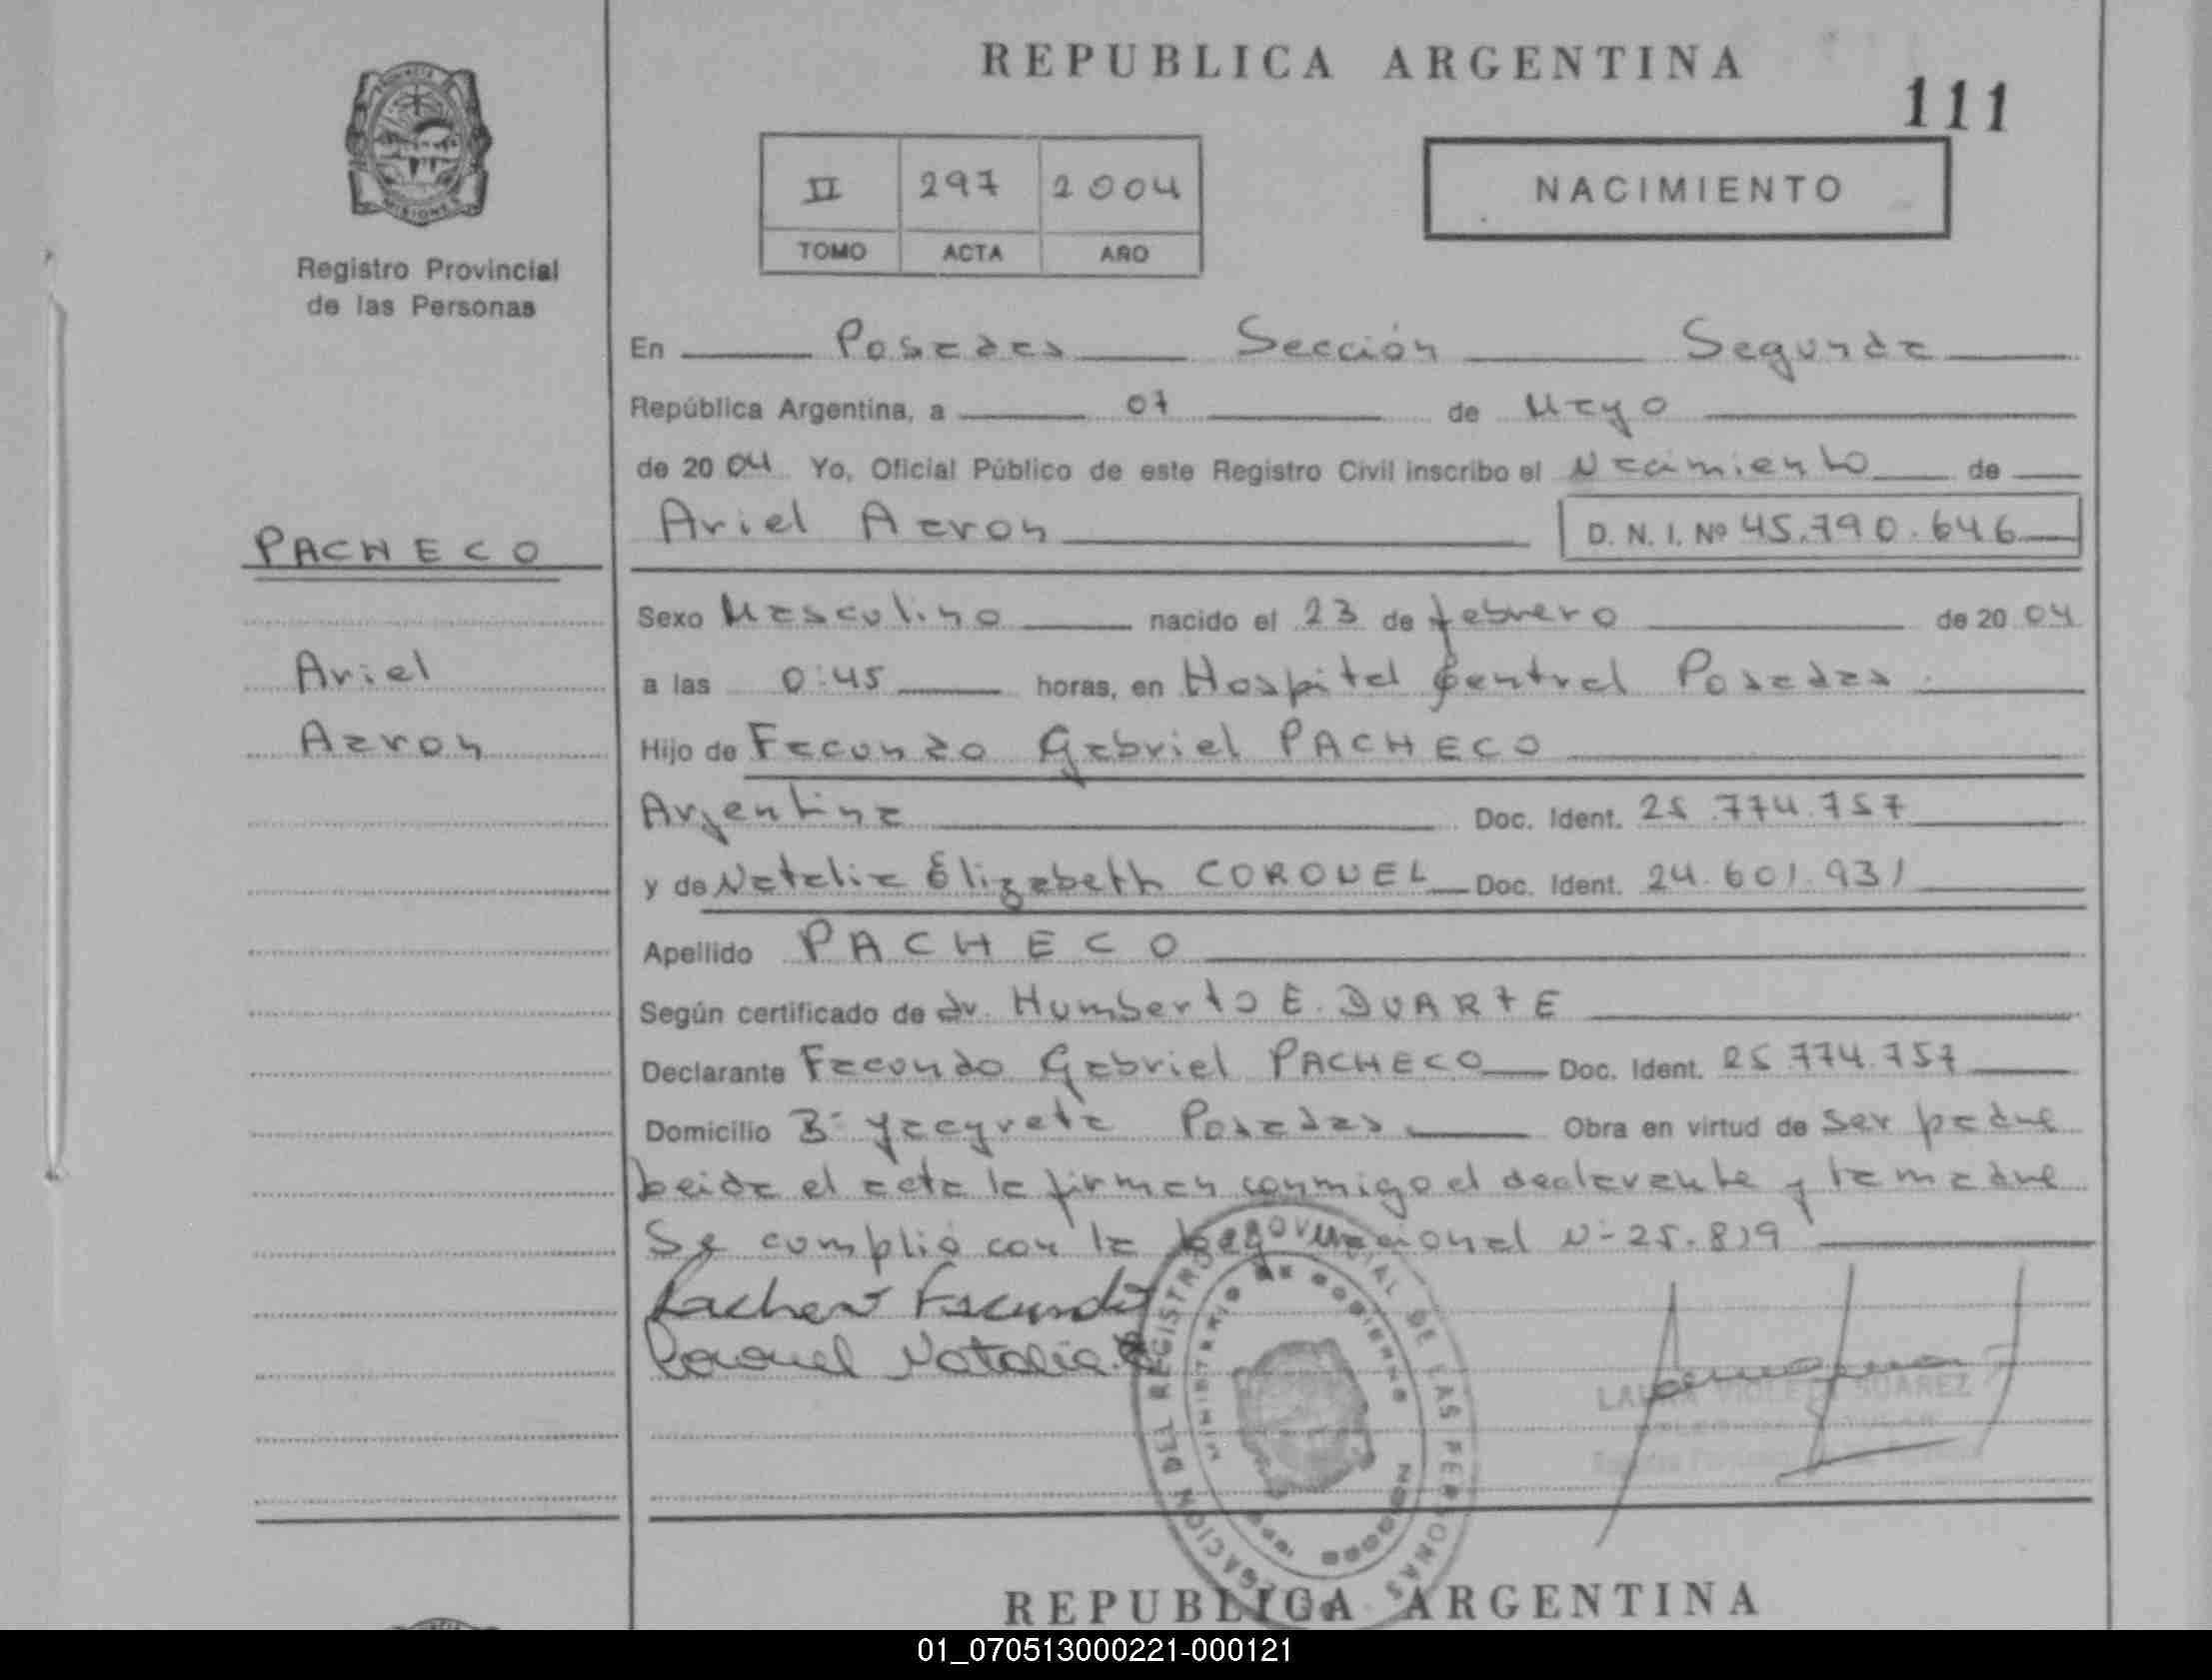 REPUBLICA ARGENTINA
111
PROVINCIA
MISIONES
Registro Provincial
de las Personas
II 297 2004
TOMO ACTA AÑO
NACIMIENTO
En Posadas Sección Segunda
República Argentina, a 07 de Mayo
de 2004 Yo, Oficial Público de este Registro Civil inscribo el Nacimiento de
PACHECO
Ariel Aaron D. N. I. Nº 45.790.646
Sexo Masculino nacido el 23 de febrero de 2004
Ariel
a las 0:45 horas, en Hospital Central Posadas
Aaron
Hijo de Facundo Gabriel PACHECO
Argentina Doc. Ident. 25.774.757
y de Natalia Elizabeth CORONEL Doc. Ident. 24.601.931
Apellido PACHECO
Según certificado de dr. Humberto E. DUARTE
Declarante Facundo Gabriel PACHECO Doc. Ident. 25.774.757
Domicilio Bº Yacyreta Posadas Obra en virtud de ser padre
Leida el acta la firman conmigo el declarante y la madre
Se cumplió con la Ley Nacional Nº 25.819
Pacheco Facundo
Coronel Natalia
DELEGACION DEL REGISTRO PROVINCIAL DE LAS PERSONAS
MINISTERIO DE GOBIERNO
LAURA VIOLETA SUAREZ
REPUBLICA ARGENTINA
01_070513000221-000121